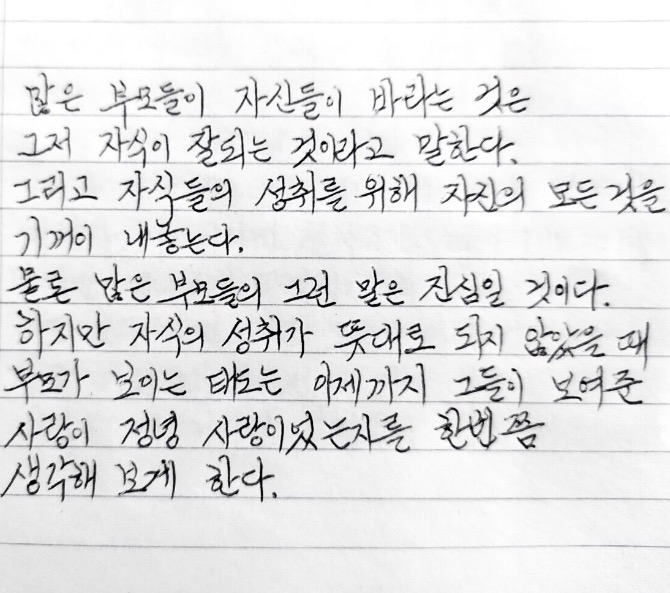 많은 부모들이 자신들이 바라는 것은
그저 자식이 잘되는 것이라고 말한다.
그리고 자식들의 성취를 위해 자신의 모든것을
기꺼이 내놓는다.
물론 많은 부모들의 그런 말은 진심일 것이다.
하지만 자식의 성취가 뜻대로 되지 않았을 때
부모가 보이는 태도는 이제까지 그들이 보여준
사랑이 정녕 사랑이었는지를 한번쯤
생각해 보게 한다.